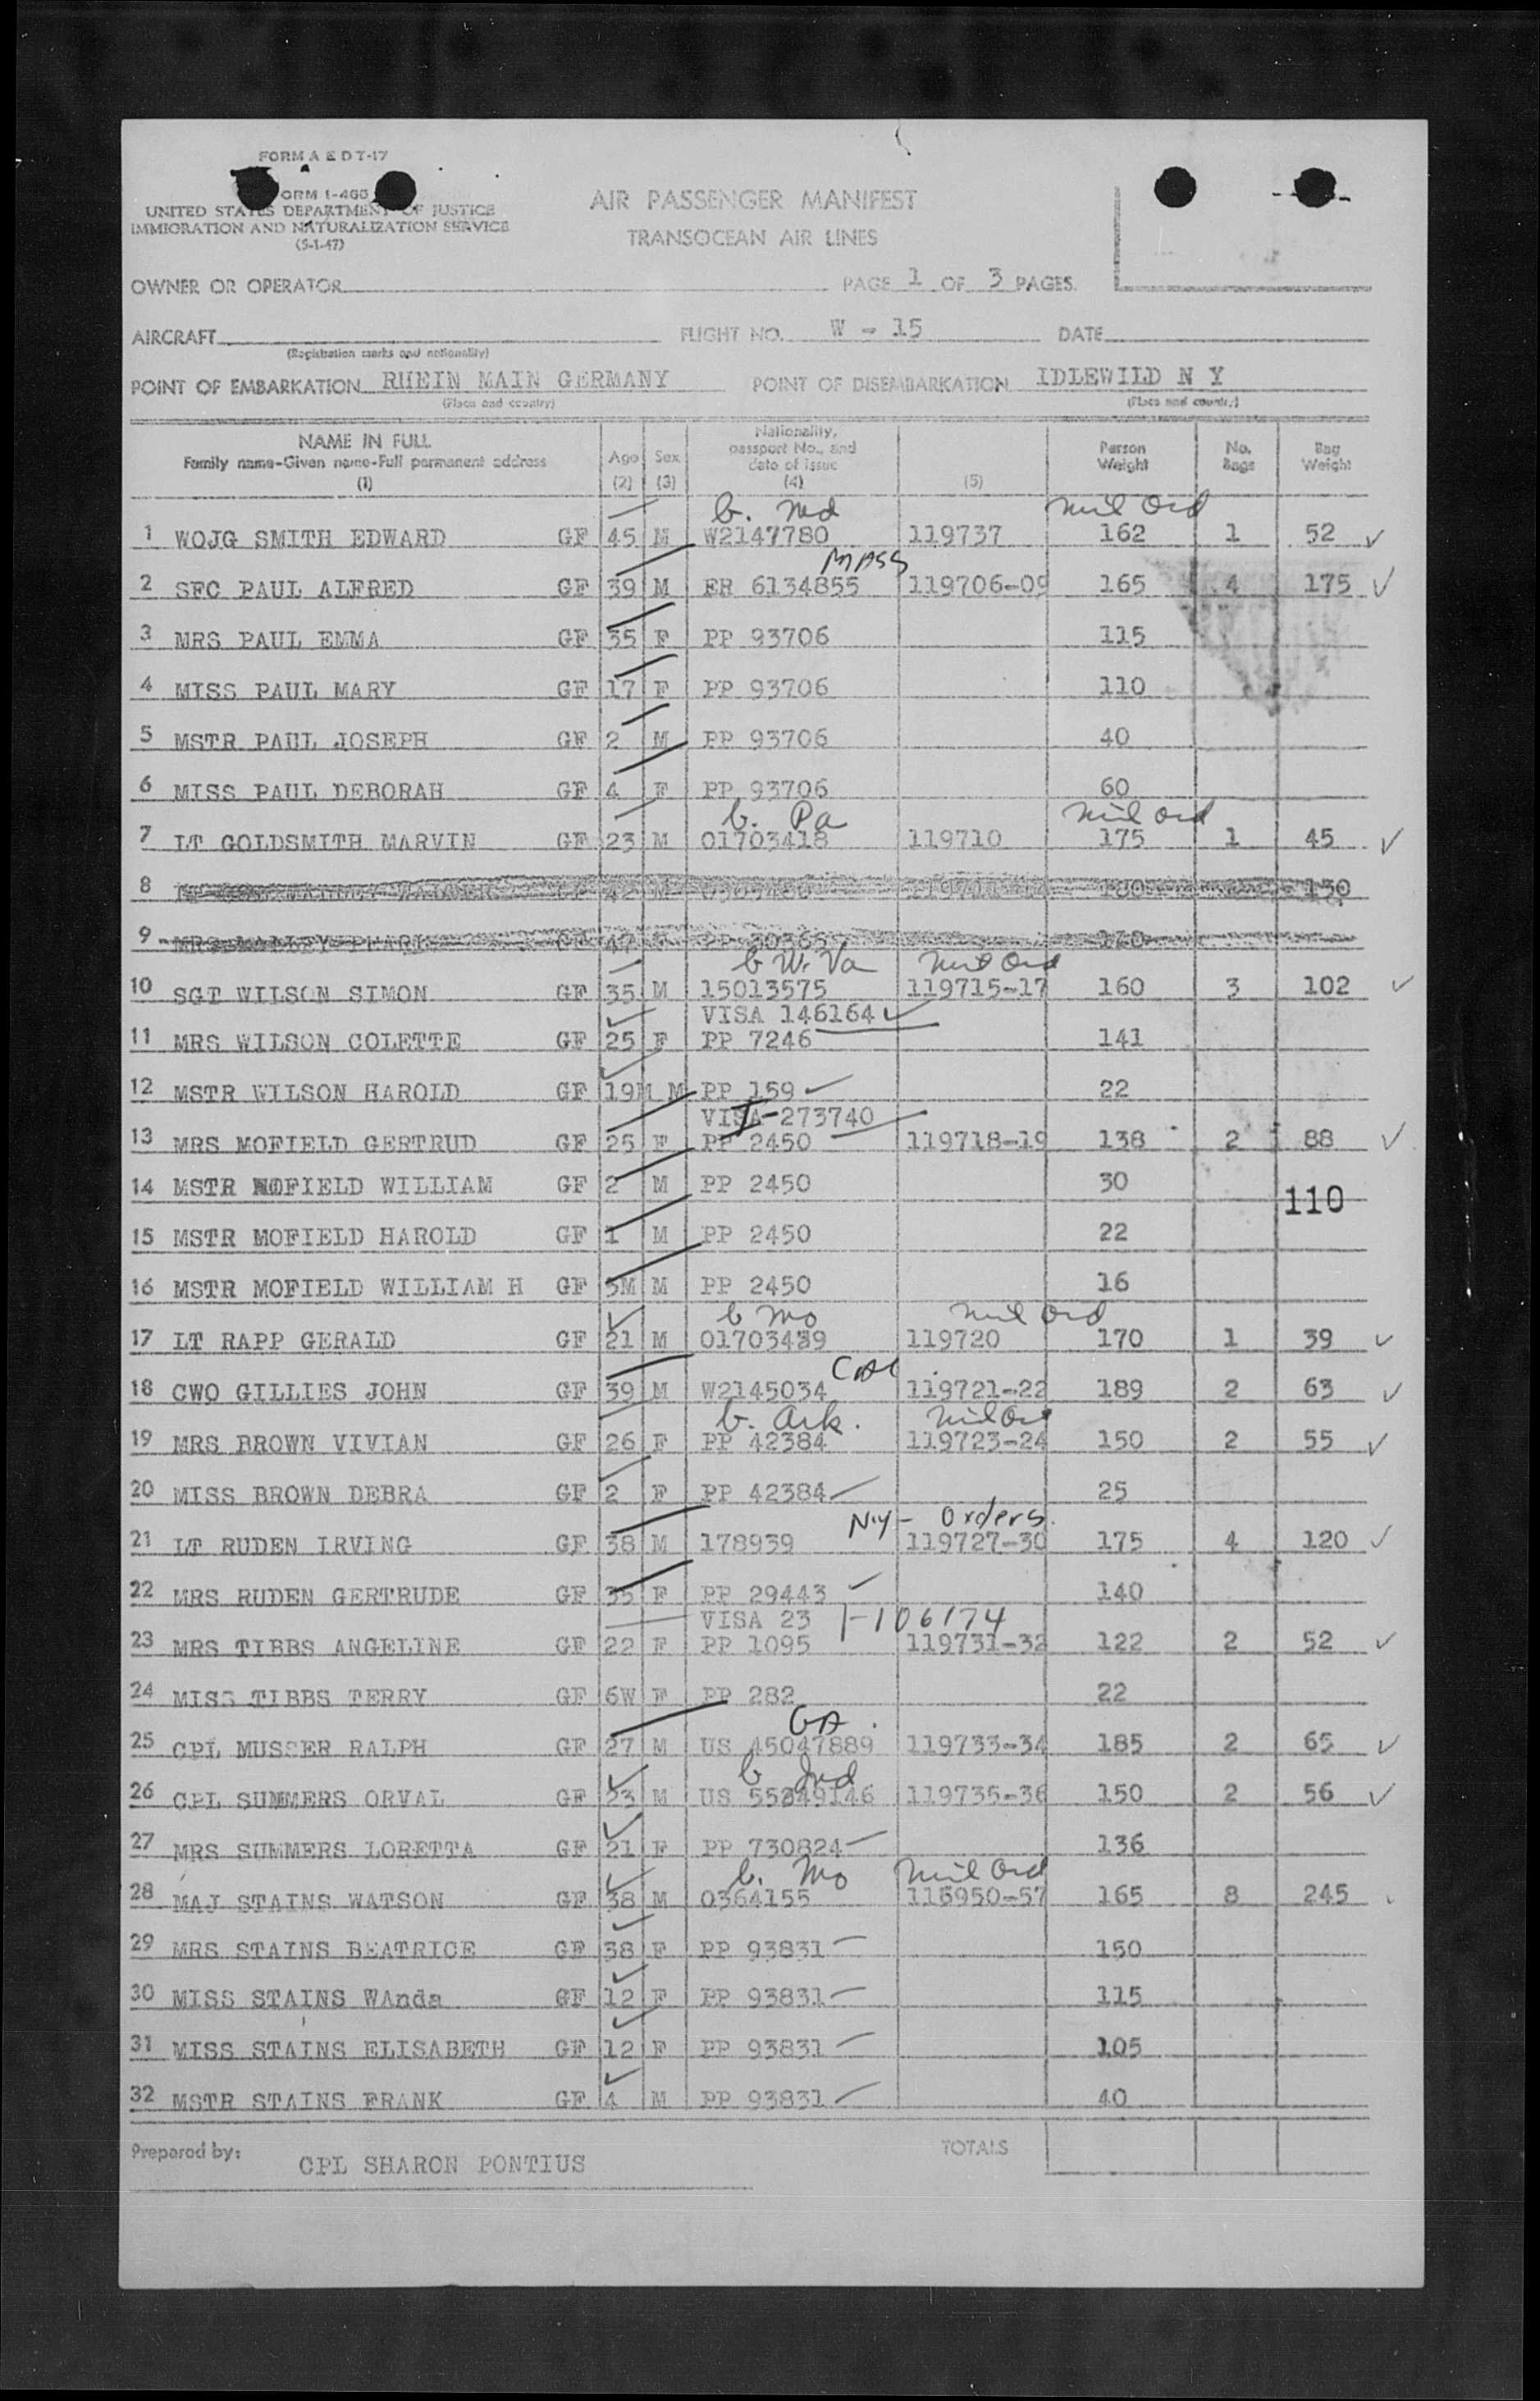 FORM A E D 7-17
ORM I-466
UNITED STATES DEPARTMENT OF JUSTICE
IMMIGRATION AND NATURALIZATION SERVICE
(5-1-47)
AIR PASSENGER MANIFEST
TRANSOCEAN AIR LINES
OWNER OR OPERATOR PAGE 1 OF 3 PAGES.
AIRCRAFT FLIGHT NO. W - 15 DATE
(Registration marks and nationality)
POINT OF EMBARKATION RHEIN MAIN GERMANY POINT OF DISEMBARKATION IDLEWILD N Y
(Place and country) (Place and country)
NAME IN FULL Family name-Given name-Full permanent address (1) Age (2) Sex (3) Nationality, passport No., and date of issue (4) (5) Person Weight No. Bags Bag Weight
b. Md Mil Ord
1 WOJG SMITH EDWARD GF 45 M W2147780 119737 162 1 52
MASS
2 SFC PAUL ALFRED GF 39 M ER 6134855 119706-09 165 4 175
3 MRS PAUL EMMA GF 35 F PP 93706 115
4 MISS PAUL MARY GF 17 F PP 93706 110
5 MSTR PAUL JOSEPH GF 2 M PP 93706 40
6 MISS PAUL DEBORAH GF 4 F PP 93706 60
b. Pa Mil Ord
7 LT GOLDSMITH MARVIN GF 23 M 01703418 119710 175 1 45
8 42 M 180 130
9 MRS GF 47 F PP 170
b W. Va Mil Ord
10 SGT WILSON SIMON GF 35 M 15013575 119715-17 160 3 102
VISA 146164
11 MRS WILSON COLETTE GF 25 F PP 7246 141
12 MSTR WILSON HAROLD GF 19M M PP 159 22
VISA-273740
13 MRS MOFIELD GERTRUD GF 25 F PP 2450 119718-19 138 2 88
14 MSTR MOFIELD WILLIAM GF 2 M PP 2450 30
110
15 MSTR MOFIELD HAROLD GF 1 M PP 2450 22
16 MSTR MOFIELD WILLIAM H GF 5M M PP 2450 16
b Mo Mil Ord
17 LT RAPP GERALD GF 21 M 01703439 119720 170 1 39
CAL
18 CWO GILLIES JOHN GF 39 M W2145034 119721-22 189 2 63
b. Ark. Mil Ord
19 MRS BROWN VIVIAN GF 26 F PP 42384 119723-24 150 2 55
20 MISS BROWN DEBRA GF 2 F PP 42384 25
N.Y - Orders.
21 LT RUDEN IRVING GF 38 M 178939 119727-30 175 4 120
22 MRS RUDEN GERTRUDE GF 35 F PP 29443 140
VISA 23 I-106174
23 MRS TIBBS ANGELINE GF 22 F PP 1095 119731-32 122 2 52
24 MISS TIBBS TERRY GF 6W F PP 282 22
GA.
25 CPL MUSSER RALPH GF 27 M US 45047889 119733-34 185 2 65
b Ind
26 CPL SUMMERS ORVAL GF 23 M US 55249146 119735-36 150 2 56
27 MRS SUMMERS LORETTA GF 21 F PP 730824 136
b. Mo Mil Ord
28 MAJ STAINS WATSON GF 38 M 0364155 118950-57 165 8 245
29 MRS STAINS BEATRICE GF 38 F PP 93831 150
30 MISS STAINS WAnda GF 12 F PP 93831 115
31 MISS STAINS ELISABETH GF 12 F PP 93831 105
32 MSTR STAINS FRANK GF 4 M PP 93831 40
Prepared by: CPL SHARON PONTIUS TOTALS